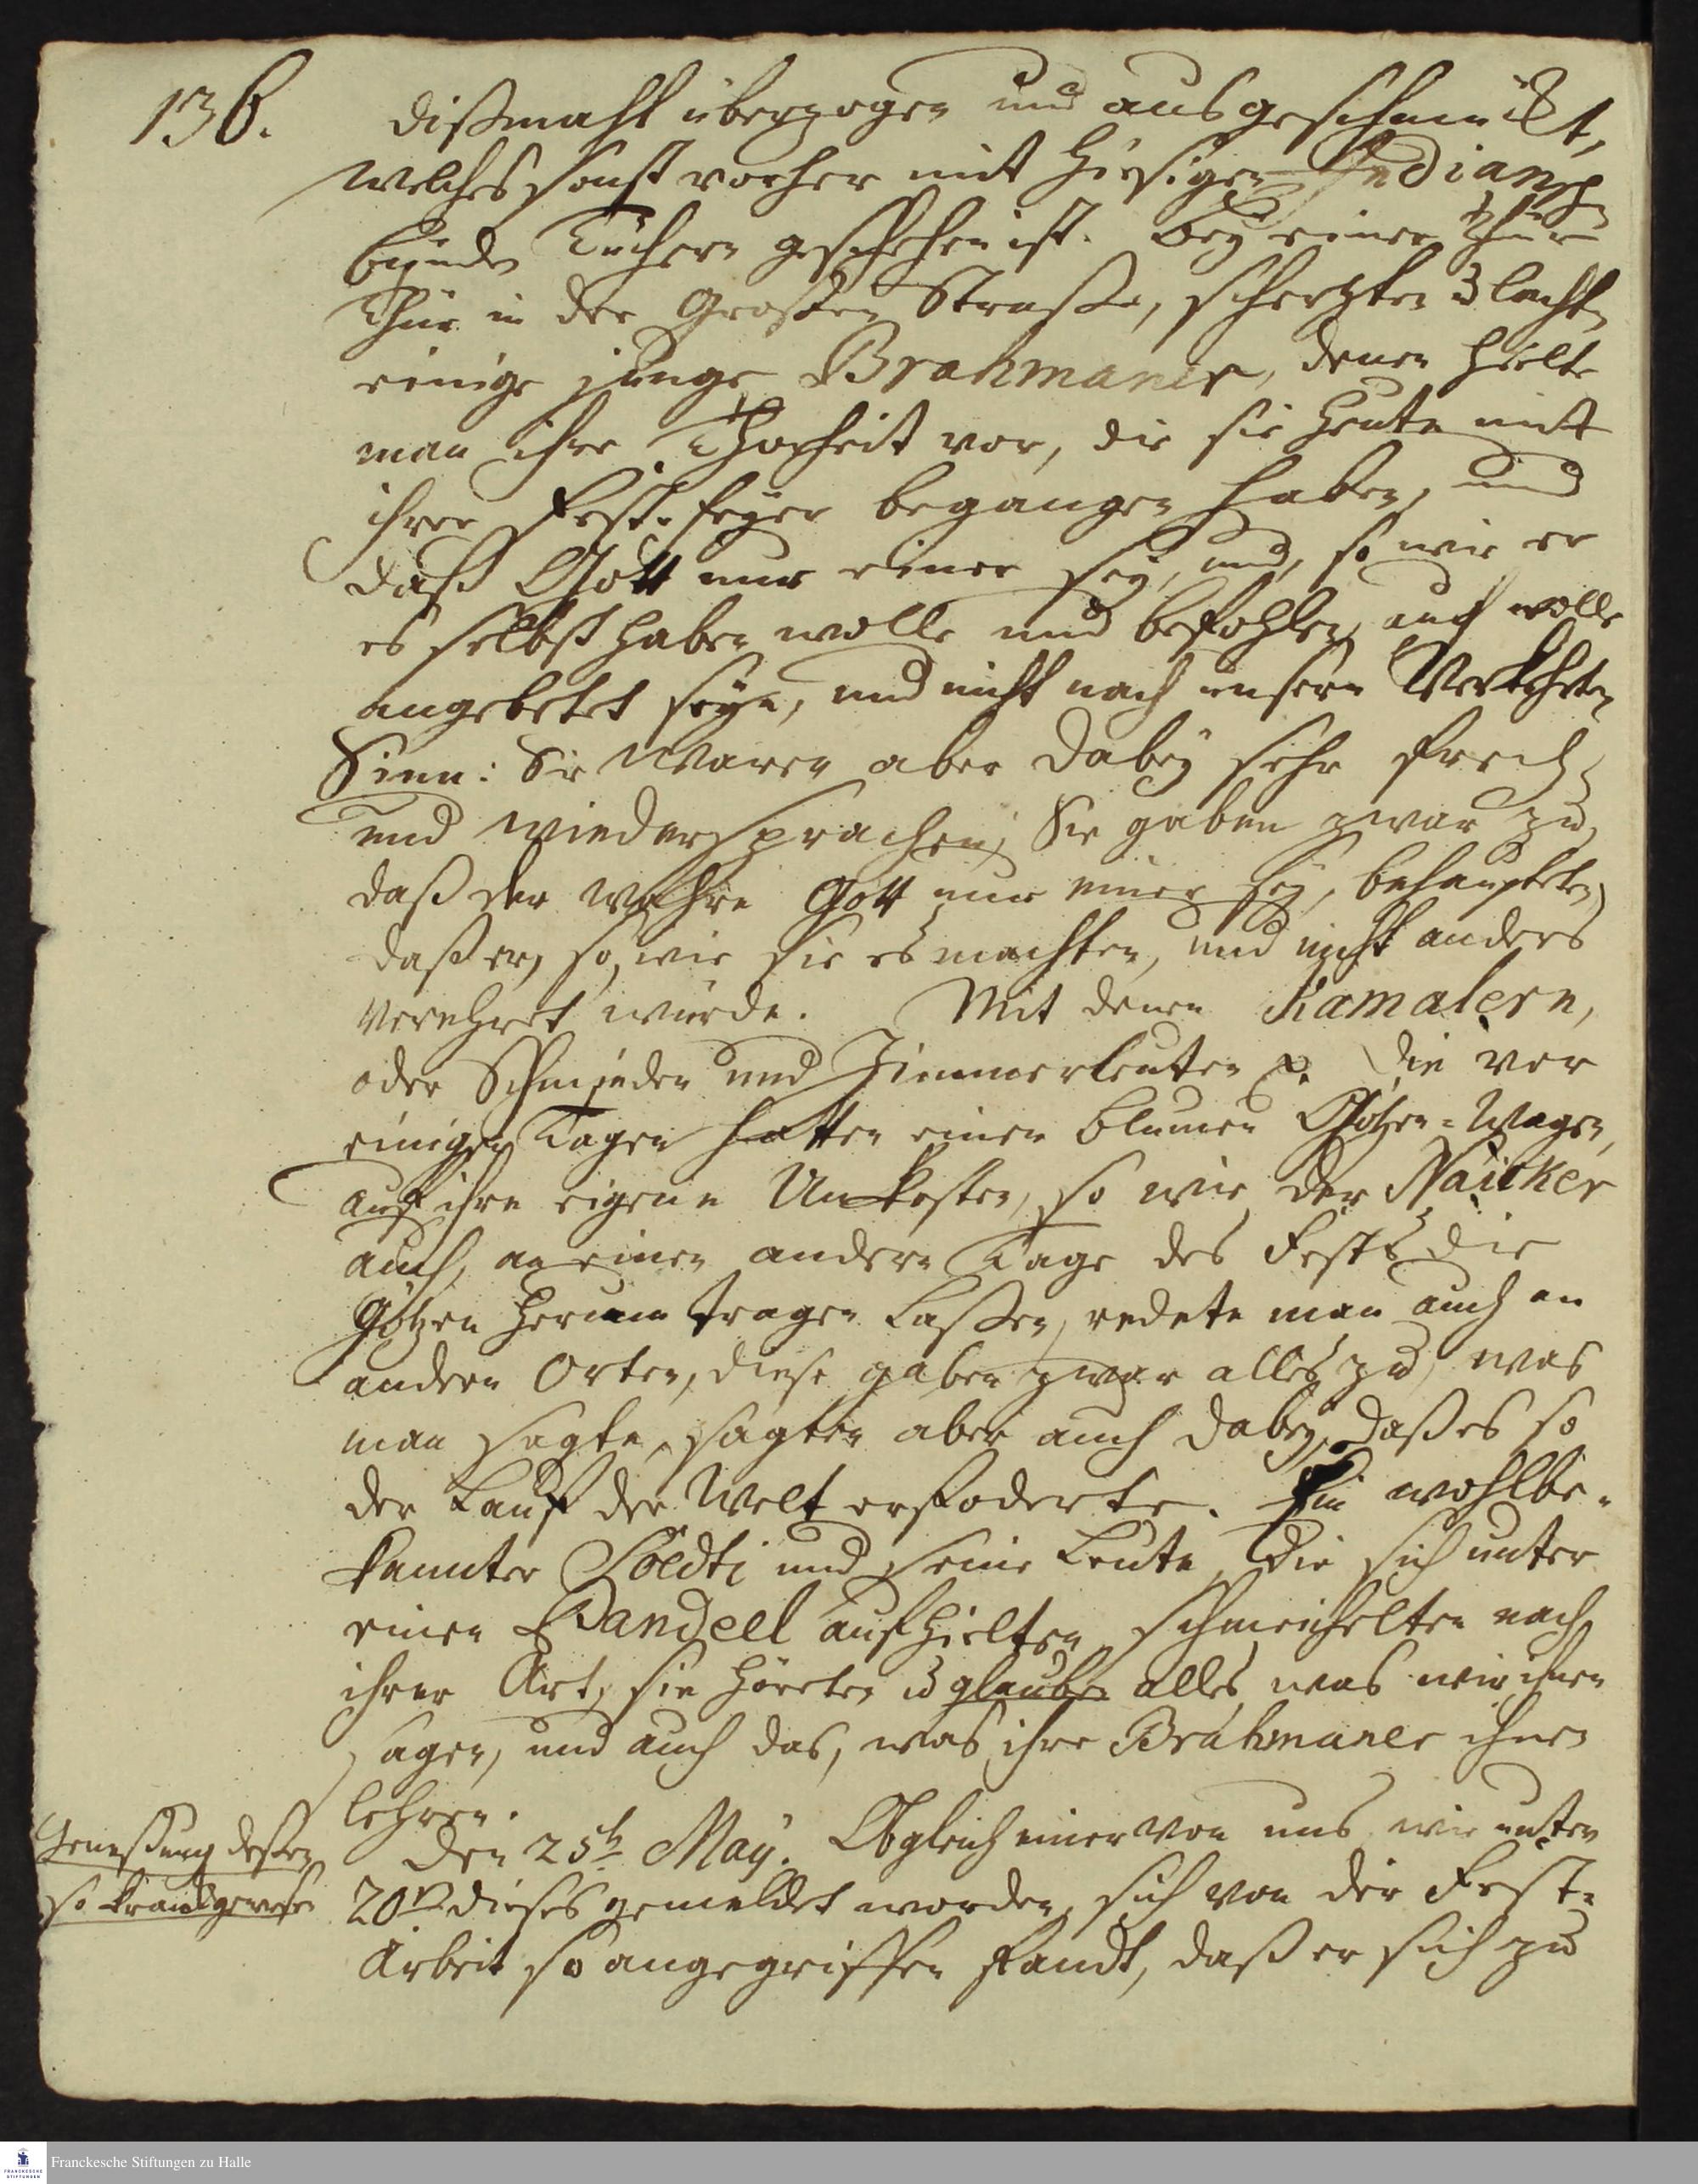 136. dißmahl überzogen und ausgeschmückt,
welches sonst vorher mit hiesigen Indianischen
bunden Tüchern geschehen ist. Bey einer Thür
Thür in der Großen Straße, schertzten u lachten
einige junge Brahmaner, denen hielte
man ihre Thorheit vor, die sie heute mit
ihrer Fest-feyer begangen haben, und
daß Gott nur einer sey, und, so wie er
es selbst haben wolle und befohlen, auch wolle
angebetet seyn, und nicht nach unsern Verkehrten
Sinn: Sie waren aber dabey sehr frech
und wiedersprachen; Sie gaben zwar zu,
daß der wahre Gott nur einer sey, behaupteten,
daß er, so, wie sie es machten, und nicht anders
verehret würde. Mit denen Kamalern,
oder Schmieden und Zimmerleuten die vor
einigen Tagen hatten einen blumen Götzen-Wagen,
auf ihre eigene Unkosten, so wie der Naicker
auch, an einen andern Tage des Fests die
Götzen herum tragen lassen, redete man auch an
andern Orten, diese gaben zwar alles zu, was
man sagte, sagten aber auch dabey, daß es so
der Lauf der Welt erfoderte. Ein wohlbe-
kannter und seine Leute, die sich unter
einen Bandeel aufhielten, schmeichelten nach
ihrer Art, sie hörten u glauben alles was wir ihnen
sagen, und auch das, was ihre Brahmaner ihnen
lehren.
Genesung dessen
so kranck gewesen
Den 25t May. Obgleich einer von uns, wie unter
20n dieses gemeldet worden, sich von der Fest-
Arbeit so angegriffen fandt, daß er sich zu
Franckesche Stiftungen zu Halle
FRANCKESCHE
STIFTUNGEN